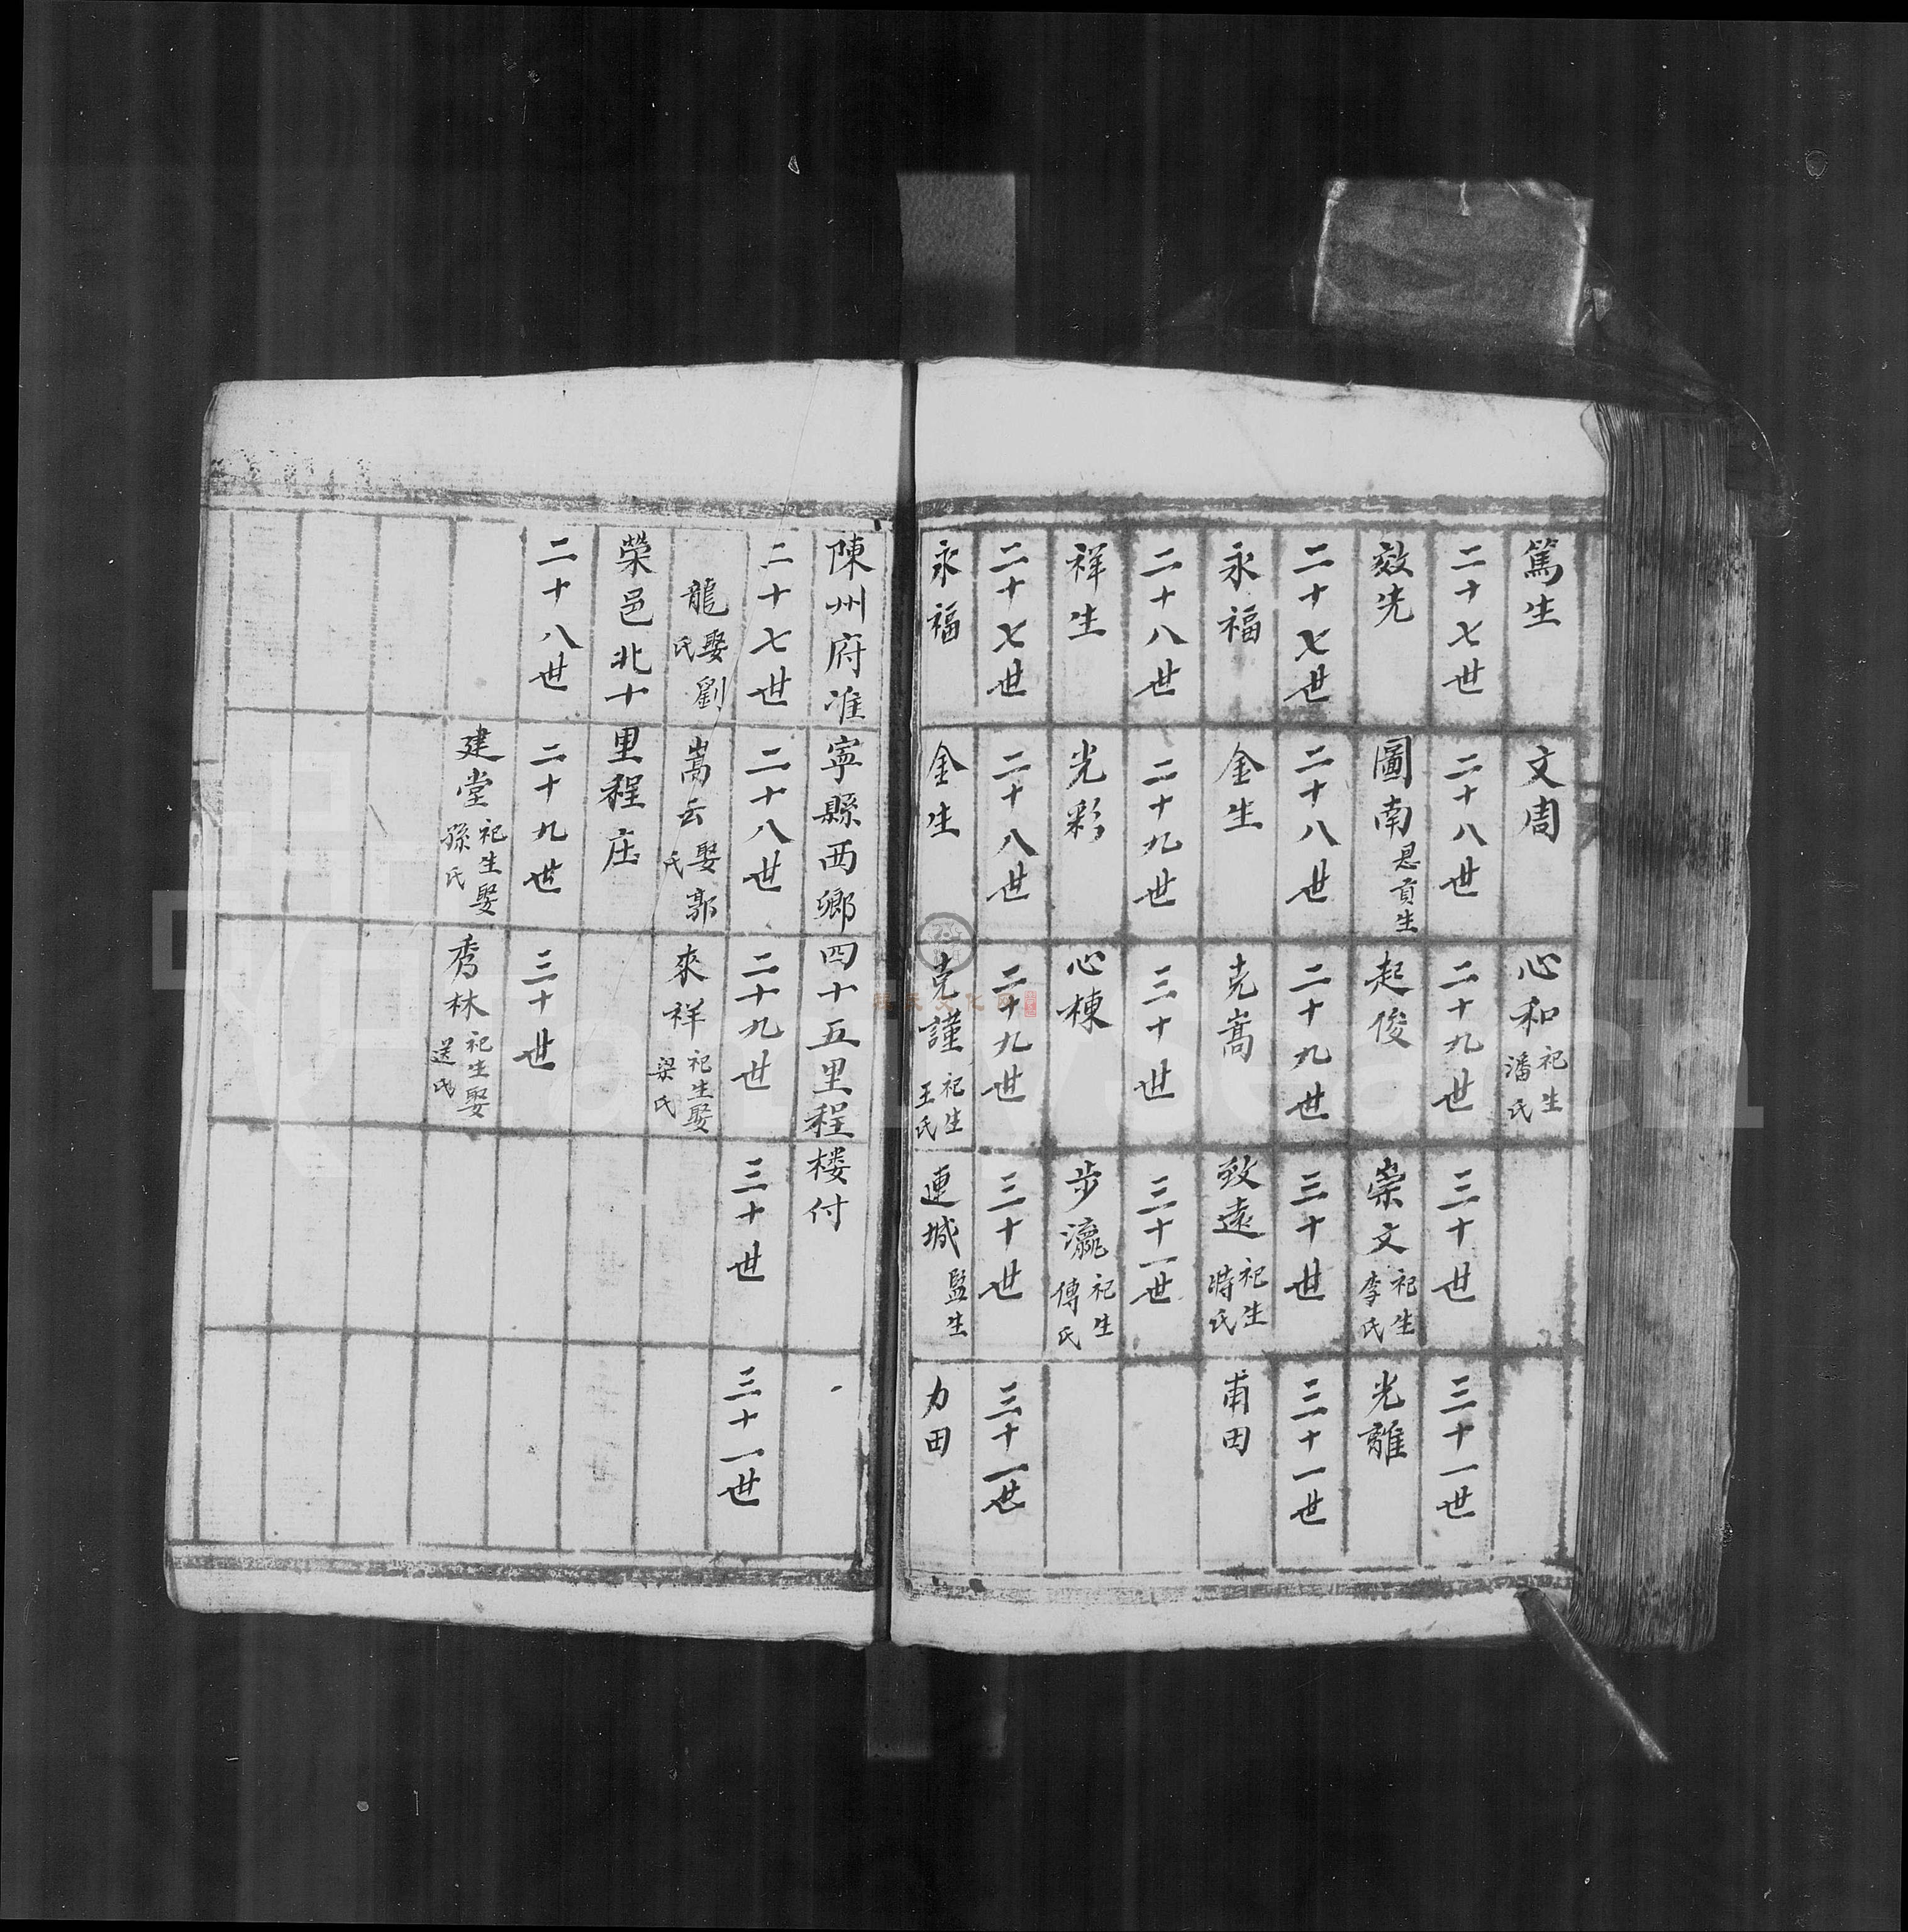 篤生 文周 心和 祀生 潘氏
二十七世 二十八世 二十九世 三十世 三十一世
效先 圖南 恩貢生 起俊 崇文 祀生 李氏 光離
二十七世 二十八世 二十九世 三十世 三十一世
永福 金生 克嵩 致遠 祀生 蔣氏 甫田
二十八世 二十九世 三十世 三十一世
祥生 光彩 心棟 步瀛 祀生 傅氏
二十七世 二十八世 二十九世 三十世 三十一世
永福 金生 克謹 祀生 王氏 連城 監生 力田
陳州府淮寧縣西鄉四十五里程楼付
二十七世 二十八世 二十九世 三十世 三十一世
龍 娶劉氏 嵩云 娶郭氏 來祥 祀生娶梁氏
榮邑北十里程庄
二十八世 二十九世 三十世
建堂 祀生娶孫氏 秀林 祀生娶送氏